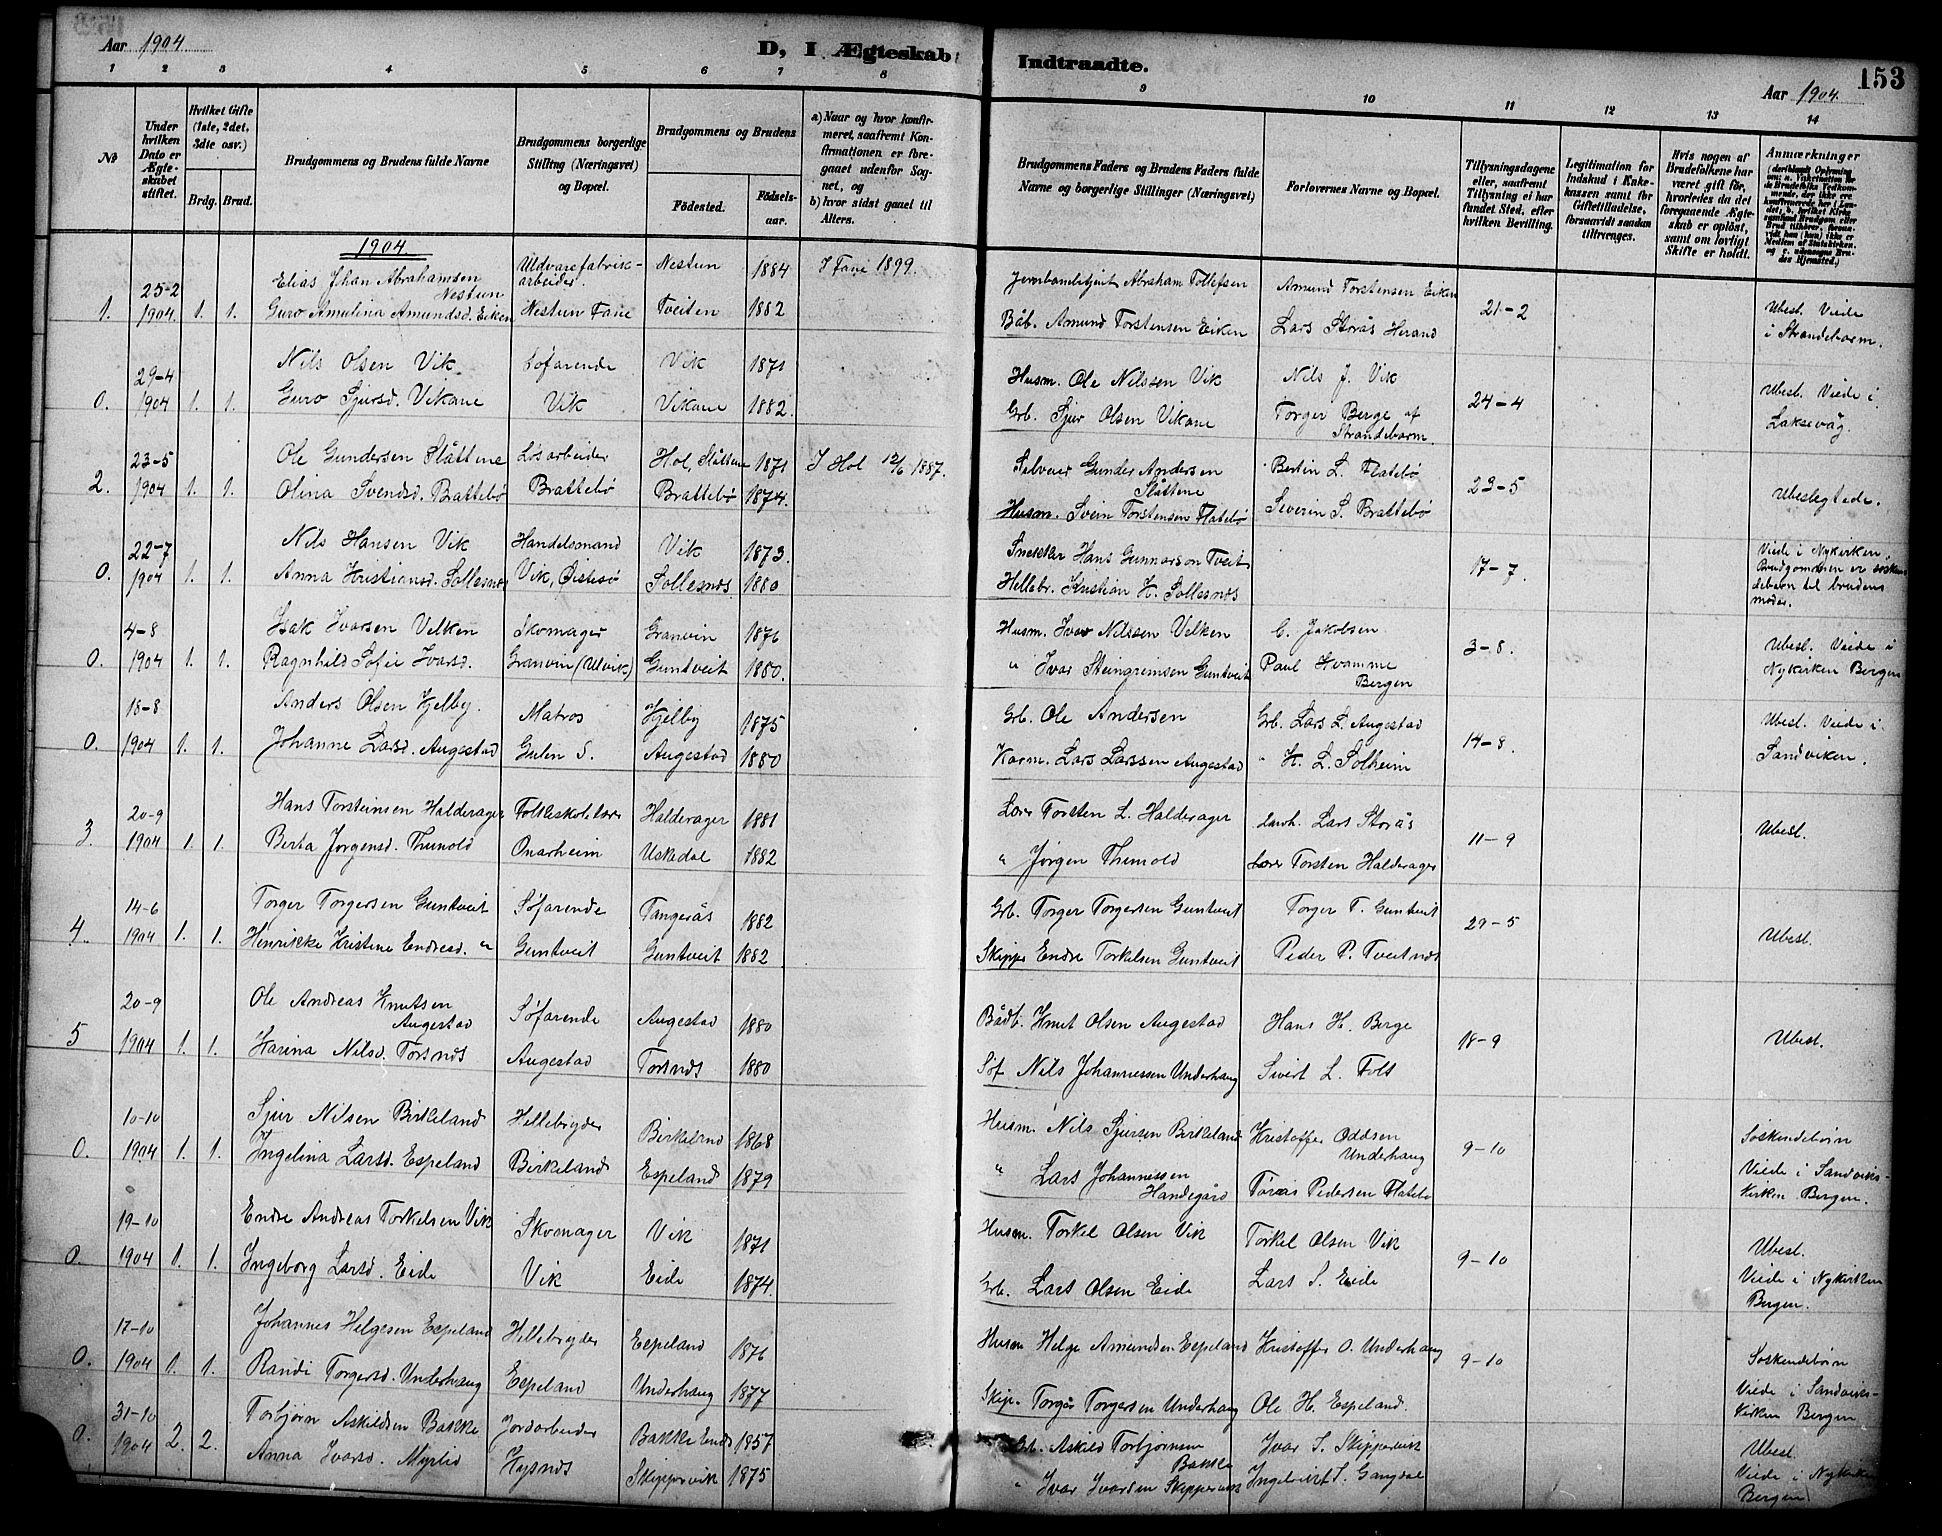 Aar 1904.
D, I Ægteskab
Indtraadte.
Aar 1904.
153
1 2 3 4 5 6 7 8 9 10 11 12 13 14
No
Under hvilken Dato er Ægteskabet stiftet.
Hvilket Gifte (1ste, 2det, 3die osv.)
Brdg. Brud.
Brudgommens og Brudens fulde Navne
Brudgommens borgerlige Stilling (Næringsvei) og Bopæl.
Brudgommens og Brudens
Fødested.
Fødselsaar.
a) Naar og hvor konfirmeret, saafremt Konfirmationen er foregaaet udenfor Sognet, og
b) hvor sidst gaaet til Alters.
Brudgommens Faders og Brudens Faders fulde Navne og borgerlige Stillinger (Næringsvei)
Forlovernes Navne og Bopæl.
Tillysningsdagene eller, saafremt Tillysning ei har fundet Sted, efter hvilken Bevilling.
Legitimation for Indskud i Enkekassen samt for Giftetilladelse, forsaavidt saadan tiltrænges.
Hvis nogen af Brudefolkene har været gift før, hvorledes da det foregaaende Ægteskab er opløst, samt om lovligt Skifte er holdt.
Anmærkninger
1904.
1. 25-2 1904. 1. 1. Elias Johan Abrahamsen Nestun Uldvarefabrikarbeider. Nestun 1884 I Fane 1899. Jernbanebetjent Abraham Tollefsen Amund Torstensen Eiken 21-2 Ubesl. Viede
Guro Amulina Amundsd. Eiken Nestun Fane Tveiten 1882 Båb. Amund Torstensen Eiken Lars Storås Herand i Strandebarm.
0. 29-4 1904 1. 1. Nils Olsen Vik Søfarende Vik 1871 Husm. Ole Nilssen Vik Nils J. Vik 24-4 Ubesl. Viede i
Guro Sjursd. Vikane Vik Vikane 1882. Grb. Sjur Olsen Vikane Torger Berge af Strandebarm. Laksevåg.
2. 23-5 1904 1. 1. Ole Gundersen Slåttene Løsarbeider Hol, Slåttene 1871 I Hol 12/6 1887. Selveier Gunder Andersen Slåttene Bertin L. Flatebø 23-5 Ubeslegtede.
Olina Svendsd. Brattebø Brattebø Brattebø 1874. Husm. Svein Torstensen Flatebø Severin S. Brattebø
0. 22-7 1904 1. 1. Nils Hansen Vik Handelsmand Vik 1873. Snekker Hans Gunnarson Tveit 17-7. Viede i Nykirken.
Anna Kristiansd. Sollesnes Vik, Østesø Sollesnæs 1880 Hellebr. Kristian K. Sollesnæs Brudgommen er søskendebarn til brudens moder.
0. 4-8 1904 1. 1. Isak Ivarsen Velken Skomager Granvin 1876 Husm. Ivar Nilssen Velken C. Jakobsen 3-8. Ubesl. Viede i
Ragnhild Sofie Ivarsd. Granvin (Ulvik) Guntveit 1880. " Ivar Steingrimsen Guntveit Paul Kvamme Bergen Nykirken Bergen
0. 18-8 1904 1. 1. Anders Olsen Hjelby. Matros Hjelby 1875 Grb. Ole Andersen Grb. Lars L. Augestad 14-8. Ubesl. Viede i
Johanne Larsd. Augestad Gulen S. Augestad 1880 Kaarm. Lars Larssen Augestad " H. L. Solheim Sandviken.
3. 20-9 1904 1. 1. Hans Torsteinsen Halderager Folkeskolelærer Halderager 1881 Lærer Torsten L. Halderager Lars Storås 11-9 Ubesl.
Berta Jørgensd. Thunold Onarheim Uskedal 1882 " Jørgen Thunold Lærer Torsten Halderager
4. 14-6 1904 1. 1. Torger Torgersen Guntveit Søfarende Tangerås 1882 Grb. Torger Torgersen Guntveit Torger T. Guntveit 29-5 Ubesl.
Henrikke Kristine Endresd. " Guntveit Guntveit 1882 Skipper Endre Torkelsen Guntveit Peder P. Tveitnæs
5 20-9 1904 1. 1. Ole Andreas Knutsen Augestad Søfarende Augestad 1880 Bådb. Knut Olsen Augestad Hans H. Berge 18-9 Ubesl.
Karina Nilsd. Torsnæs Augestad Torsnæs 1880 Søf Nils Johannessen Underhaug Sivert L. Folt
0. 10-10 1904 1. 1. Sjur Nilsen Birkeland Hellebryder Birkeland 1868 Husm. Nils Sjursen Birkeland Kristoffer Oddsen Underhaug 9-10 Søskendebørn
Ingelina Larsd. Espeland Birkeland Espeland 1879 " Lars Johannessen Handegård Tøres Pedersen Flatebø Viede i Sandviks-kirken Bergen.
0. 19-10 1904 1. 1. Endre Andreas Torkelsen Vik Skomager Vik 1871 Husm. Torkel Olsen Vik Torkel Olsen Vik 9-10 Ubesl.
Ingeborg Larsd. Eide Vik Eide 1874. Grb. Lars Olsen Eide Lars S. Eide Viede i Nykirken Bergen.
0. 17-10 1904 1. 1. Johannes Helgesen Espeland Hellebryder Espeland 1876 Husm Helge Amundsen Espeland Kristoffer O. Underhaug 9-10 Søskendebørn
Randi Torgersd. Underhaug Espeland Underhaug 1877 Skip. Torger Torgersen Underhaug Ole H. Espeland. Viede i Sandviks-kirken Bergen
0. 31-10 1904 2. 2. Torbjørn Askildsen Bakke Jordarbeider Bakke Endr 1857 Grb. Askild Torbjørnsen Bakke Ivar S. Skippervik Ubesl.
Anna Ivarsd. Myrlid Hysnæs Skippervik 1875 " Ivar Ivarsen Skippervik Ingebrigt S. Gangdal Viede i Nykirken Bergen